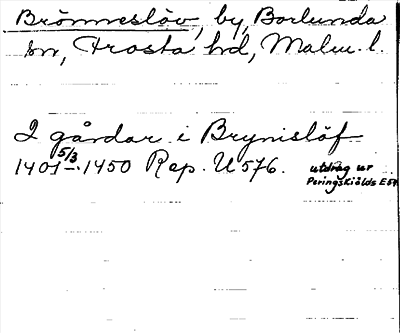 Brönneslöv, by, Borlunda
sn, Frosta hd, Malm. l.
2 gårdar i Brynislöf
1401 5/3 - 1450 Rep. U 576. utdrag ur
Peringskiölds E